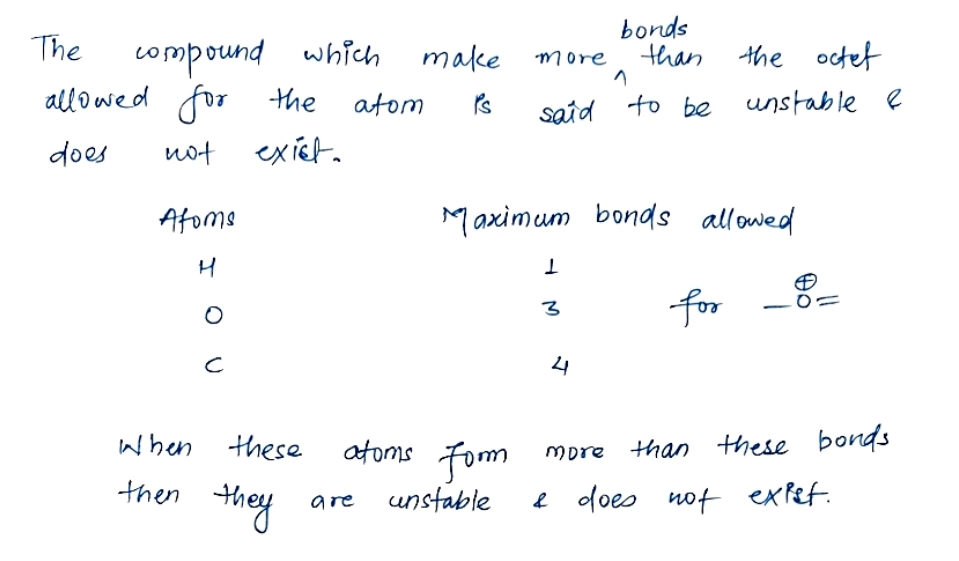 The compound which make more bonds than the octet
allowed for the atom is said to be unstable &
does not exist.
Atoms Maximum bonds allowed
H 1
O 3 for –Ö⊕=
C 4
When these atoms form more than these bonds
then they are unstable & does not exist.